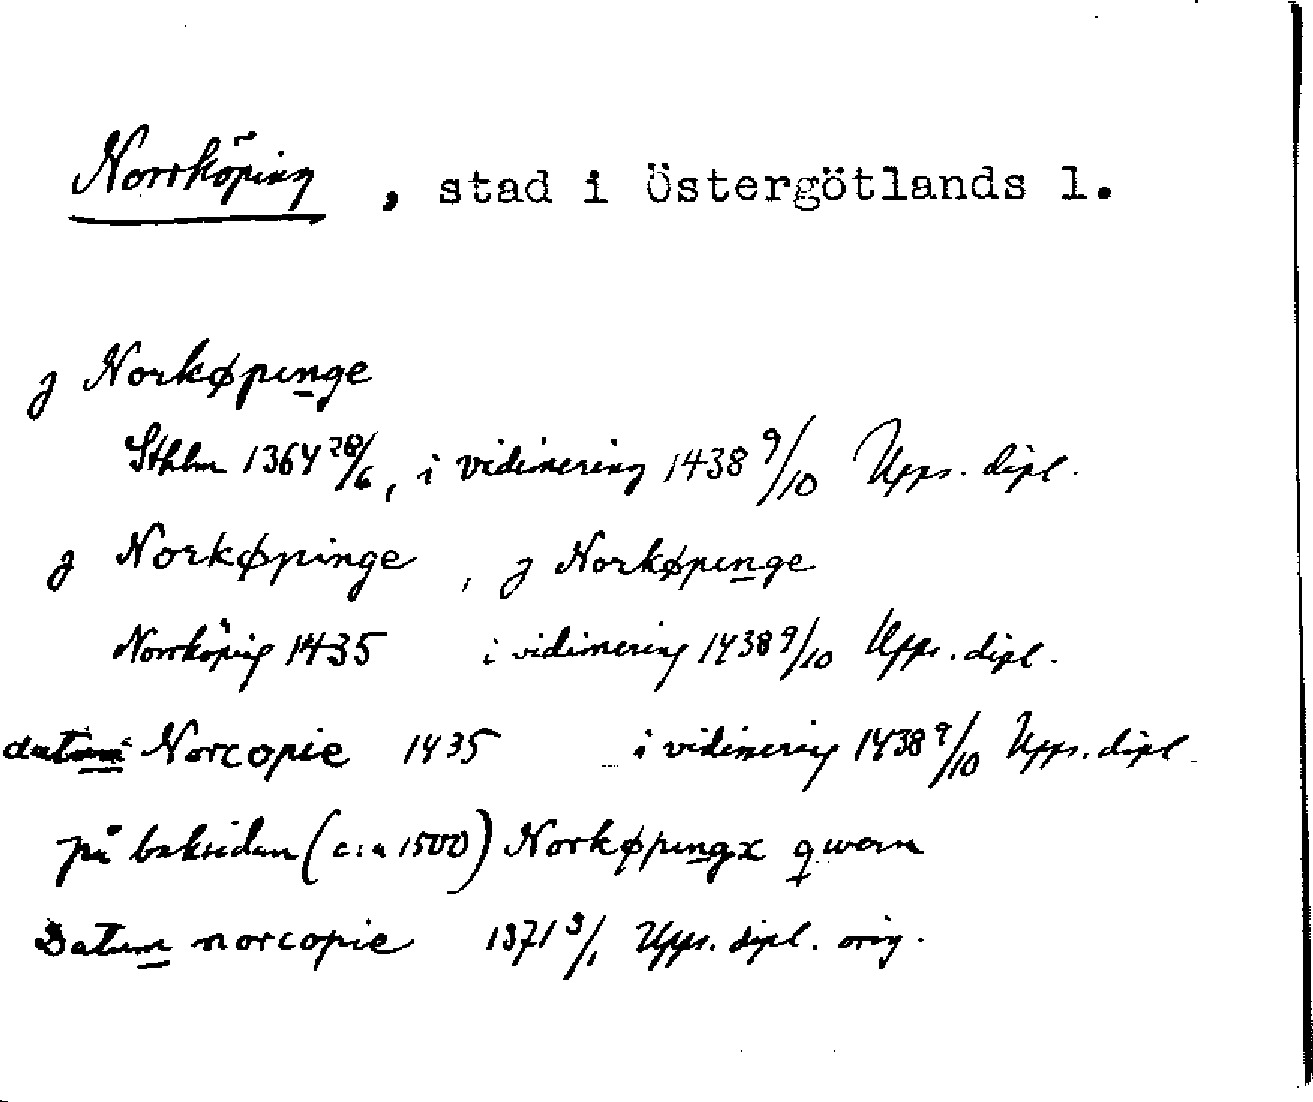 Norrköping, stad i Östergötlands l.
j Norkøpinge
Sthlm 1364 28/6, i vidimering 1438 9/10 Upps. dipl.
j Norkøpinge, j Norkøpinge
Norrköping 1435 i vidimering 1438 9/10 Upps. dipl.
datum Norcopie 1435 i vidimering 1438 9/10 Upps. dipl
på baksidan (c:a 1500) Norkøpingx qwern
Datum norcopie 1371 3/1 Upps. dipl. orig.